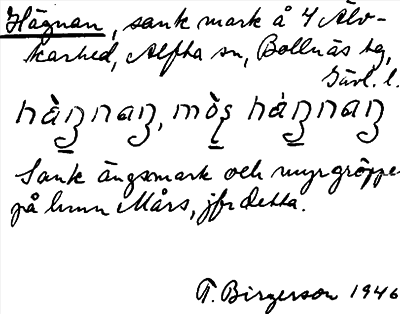 Hägnan, sank mark å 4 Älv-
karhed, Alfta sn, Bollnäs tg,
Gävl. l.
hàŋnaŋ, mòs hàŋnaŋ
Sank ängsmark och myrgröppe
på hmn Mårs, jfr detta.
T. Birgerson 1946